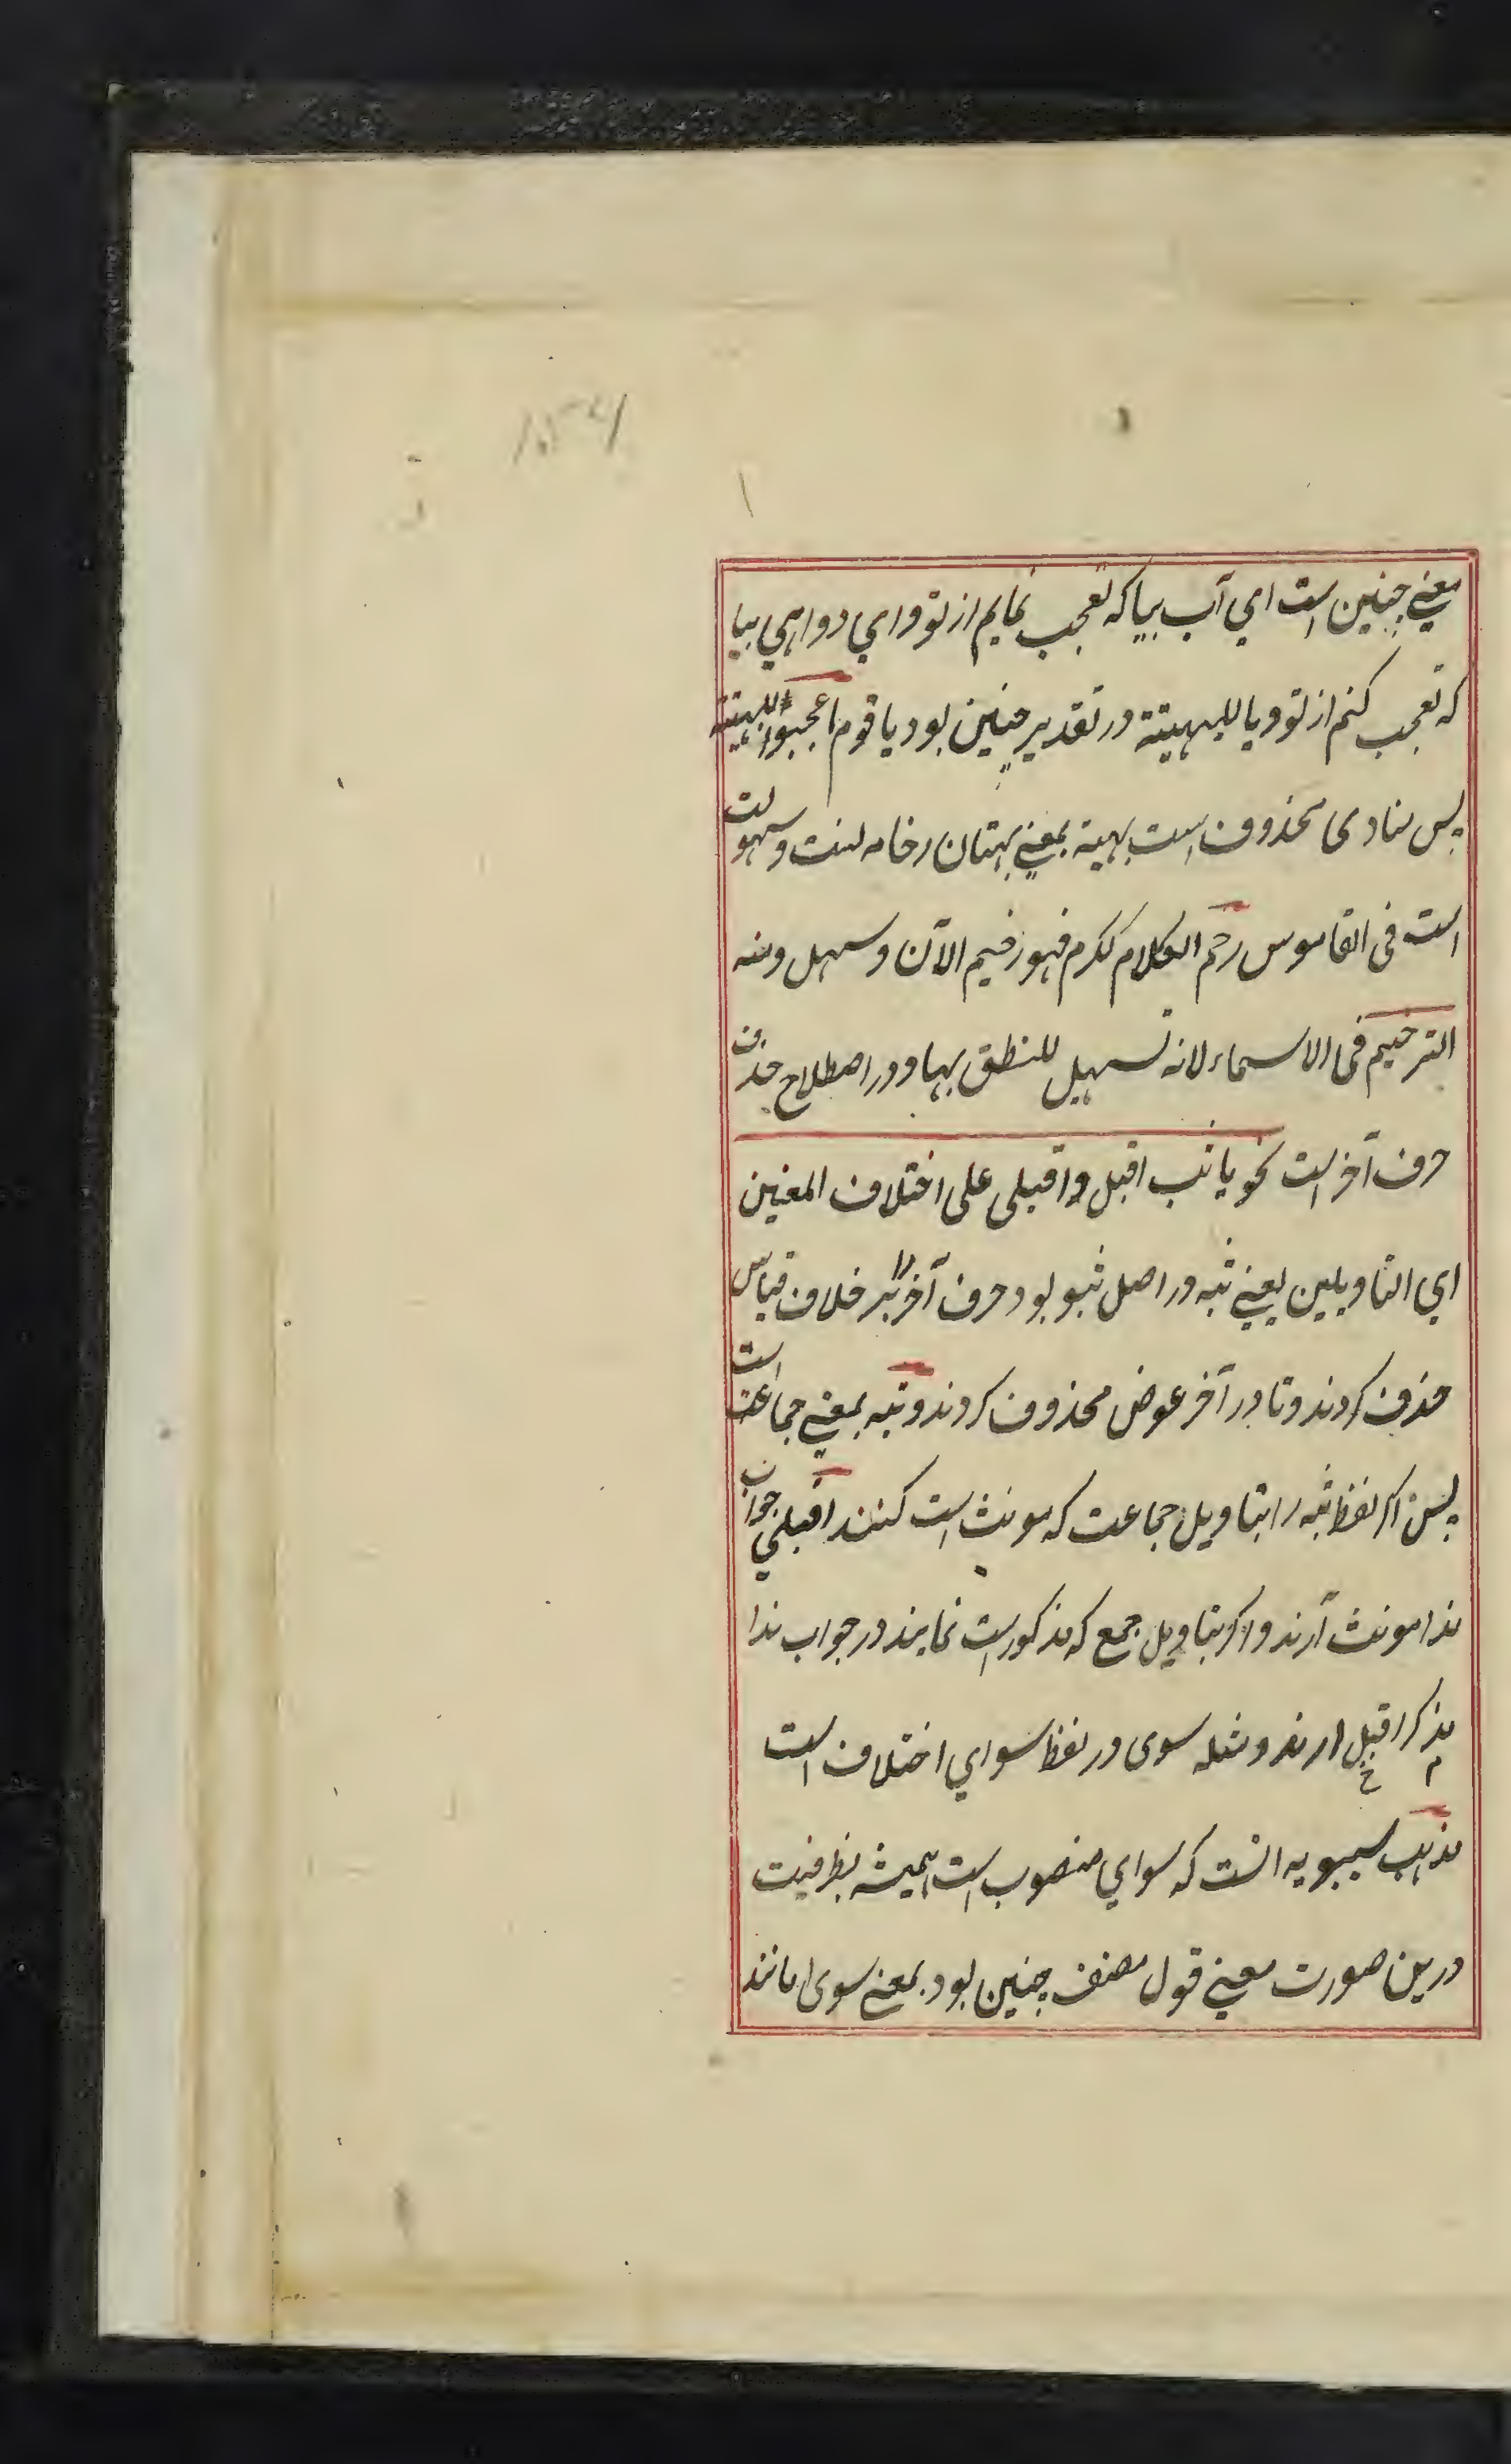 معنی چنین است ای آب بیا که تعجب نمایم از تو و ای دواهی بیا
که تعجب کنم از تو و یا للبهیتة در تقدیر چنین بود یا قوم اعجبوا للبهیتة
پس منادی محذوف است بهیته بمعنی بهتان رخامه لینت و سهولت
است فی القاموس رخم الکلام ککرم فهو رخیم الآن و سهل ومنه
الترخیم فی الاسماء لانه تسهیل للنطق بها و در اصطلاح حذف
حرف آخر است نحو یا ثب اقبل واقبلی علی اختلاف المعنین
ای التاویلین یعنی ثبه در اصل ثبو بود حرف آخر را بر خلاف قیاس
حذف کردند و تا در آخر عوض محذوف کردند و ثبه بمعنی جماعت است
پس اکر لفظ ثبه را بتاویل جماعت که مونث است کنند اقبلی جواب
ندا مونث آرند و اکر بتاویل جمع که مذکور است نمایند در جواب ندا
مذکر اقبل ارند و مثله سوی در لفظ سوای اختلاف است
مذهب سیبویه انست که سوای منصوب است همیشه بظرفیت
درین صورت معنی قول مصنف چنین بود بمعنی سوی مانند